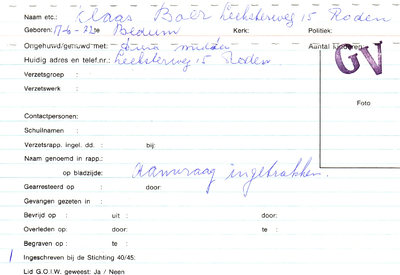 Naam etc.: Claas Boer Leeksterweg 15 Roden
Geboren: 17-6-22 te Bedum Kerk: Politiek:
Ongehuwd/gehuwd met: Anna Mulder Aantal kinderen:
Huidig adres en telef.nr.: Leeksterweg 15 Roden
GV
Verzetsgroep :
Verzetswerk :
Foto
Contactpersonen:
Schuilnamen :
Verzetsrapp. ingel. dd. : bij:
Naam genoemd in rapp.:
op bladzijde: Aanvraag ingetrokken.
Gearresteerd op : door:
Gevangen gezeten in :
Bevrijd op : uit : door:
Overleden op: te : door:
Begraven op : te :
Ingeschreven bij de Stichting 40/45:
Lid G.O.I.W. geweest: Ja / Neen